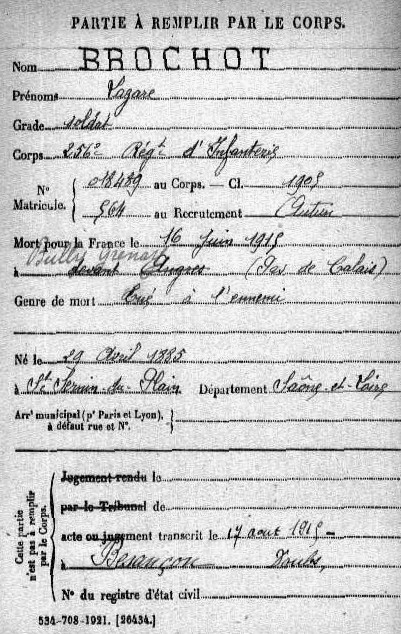 PARTIE À REMPLIR PAR LE CORPS.
Nom BROCHOT
Prénoms Lazare
Grade soldat
Corps 256e Régt d'Infanterie
N° Matricule. 018489 au Corps. — Cl. 1905
564 au Recrutement Autun
Mort pour la France le 16 Juin 1915
Bully Grenay
à devant Angres (Pas de Calais)
Genre de mort Tué à l'ennemi
Né le 29 Avril 1885
à St Sernin-du-Plain Département Saône-et-Loire
Arrt municipal (pr Paris et Lyon),
à défaut rue et N°.
Cette partie n'est pas à remplir par le Corps.
Jugement rendu le
par le Tribunal de
acte ou jugement transcrit le 17 aout 1915
à Besançon Doubs
N° du registre d'état civil
534-708-1921. [26434.]